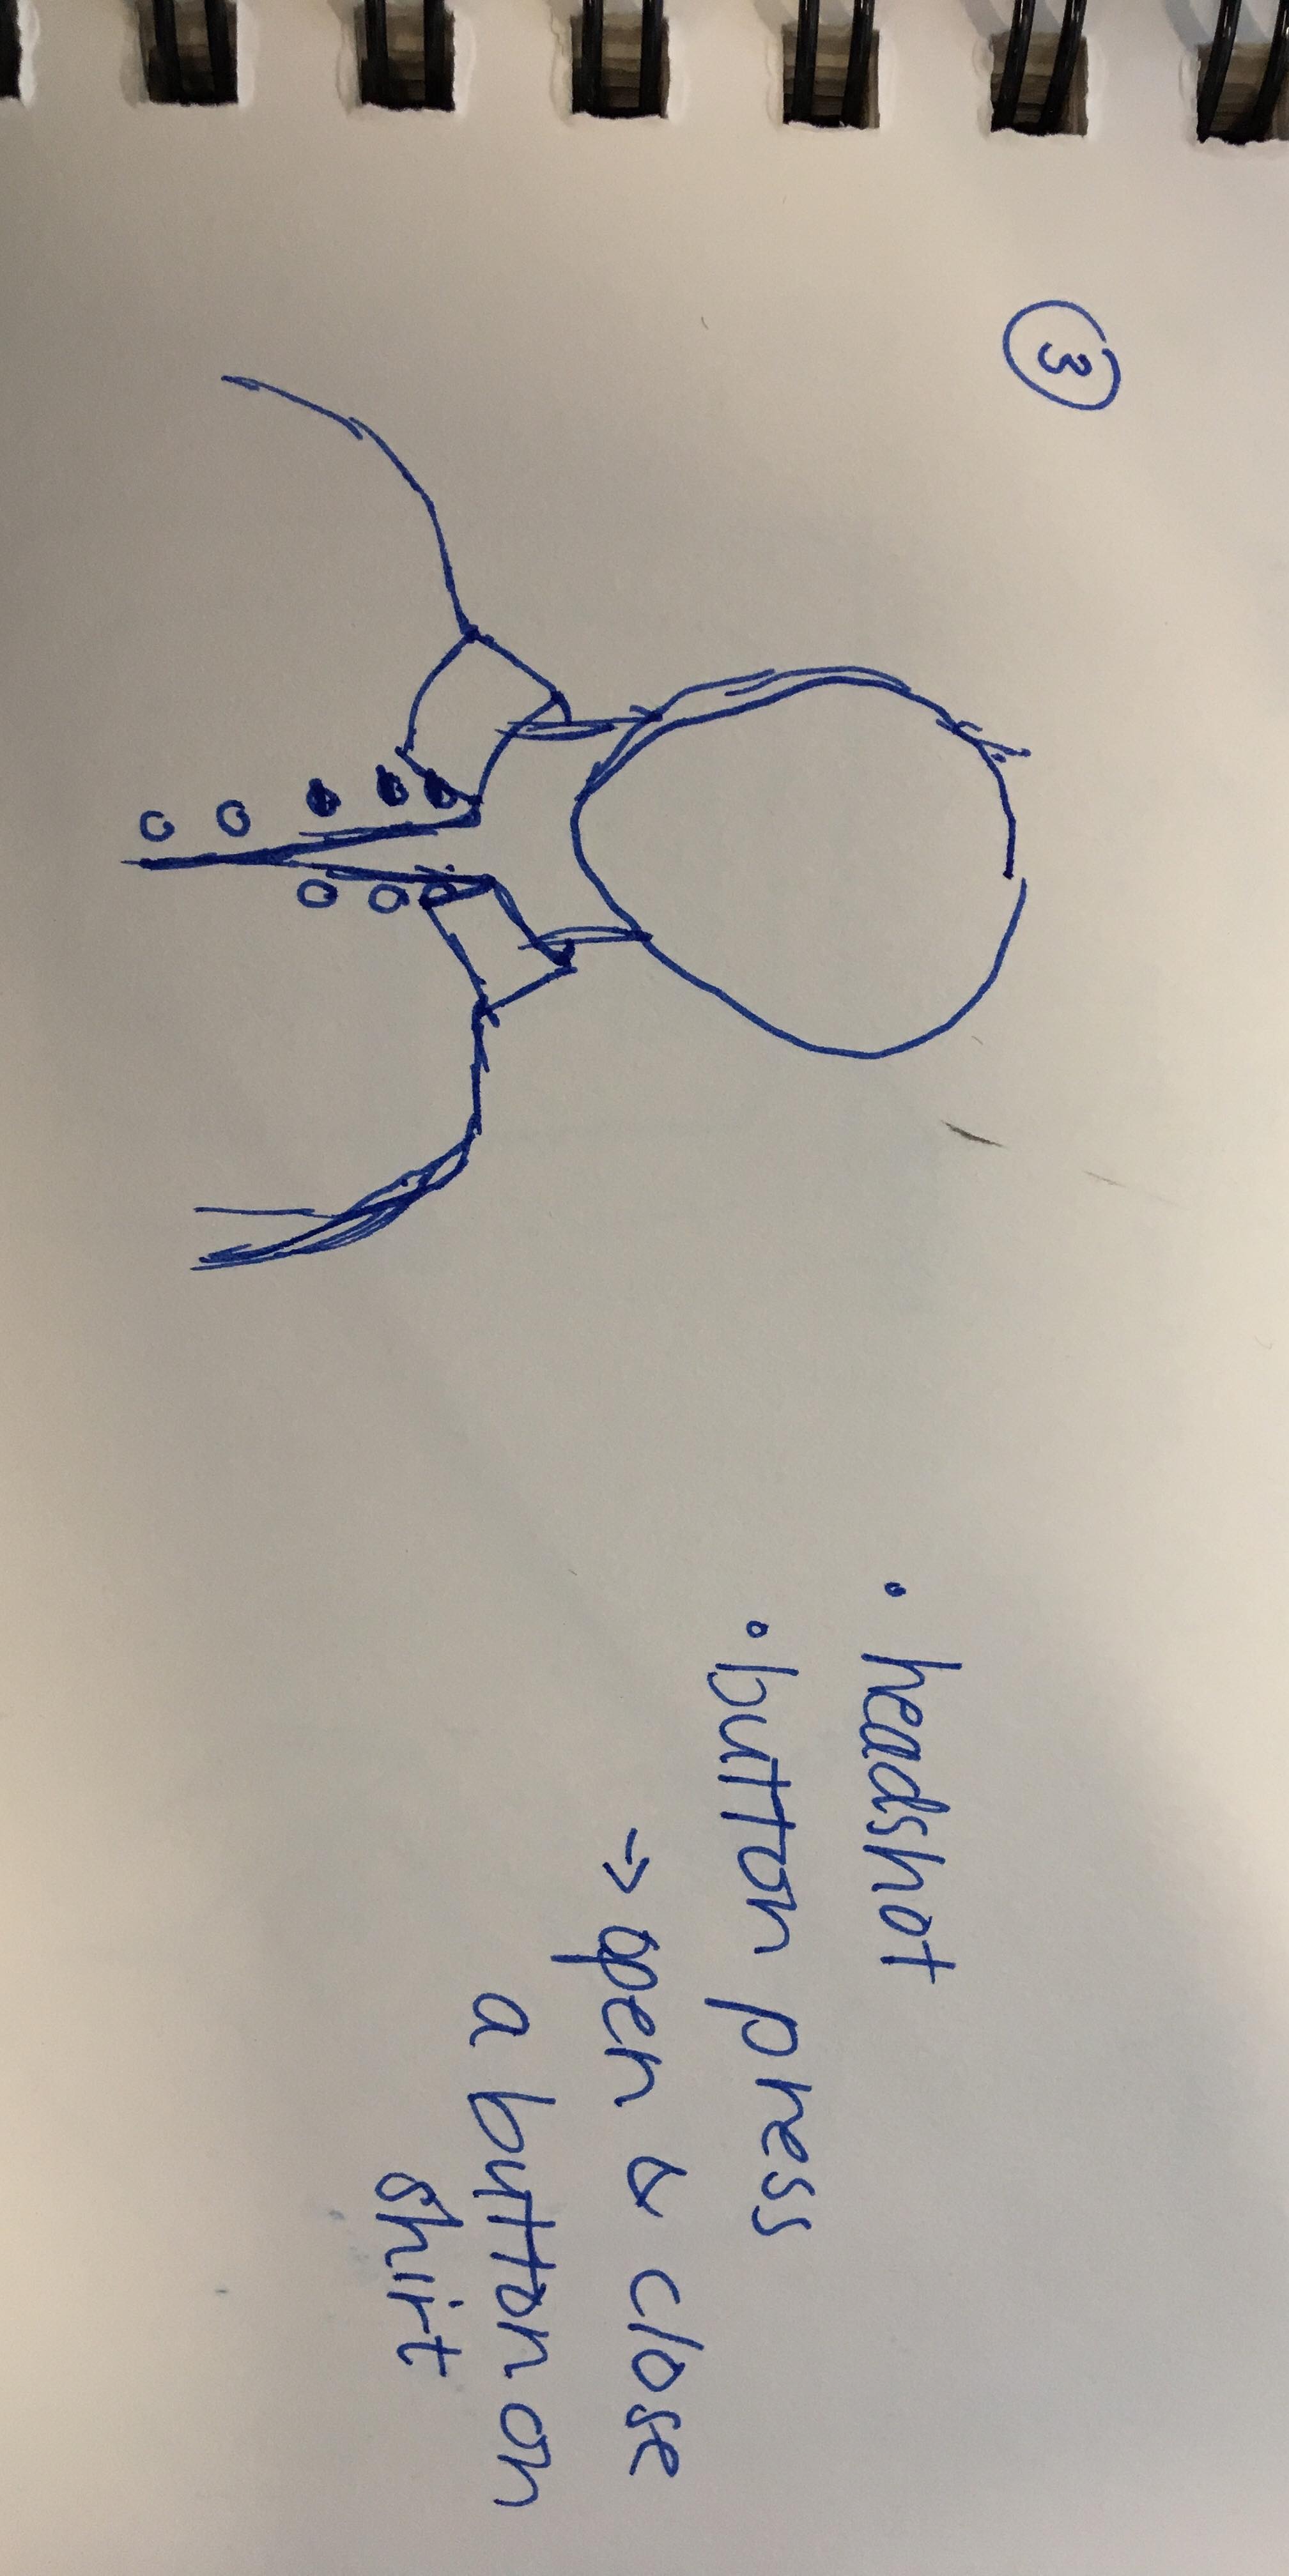 3
• headshot
• button press
→ open & close
a button on
shirt